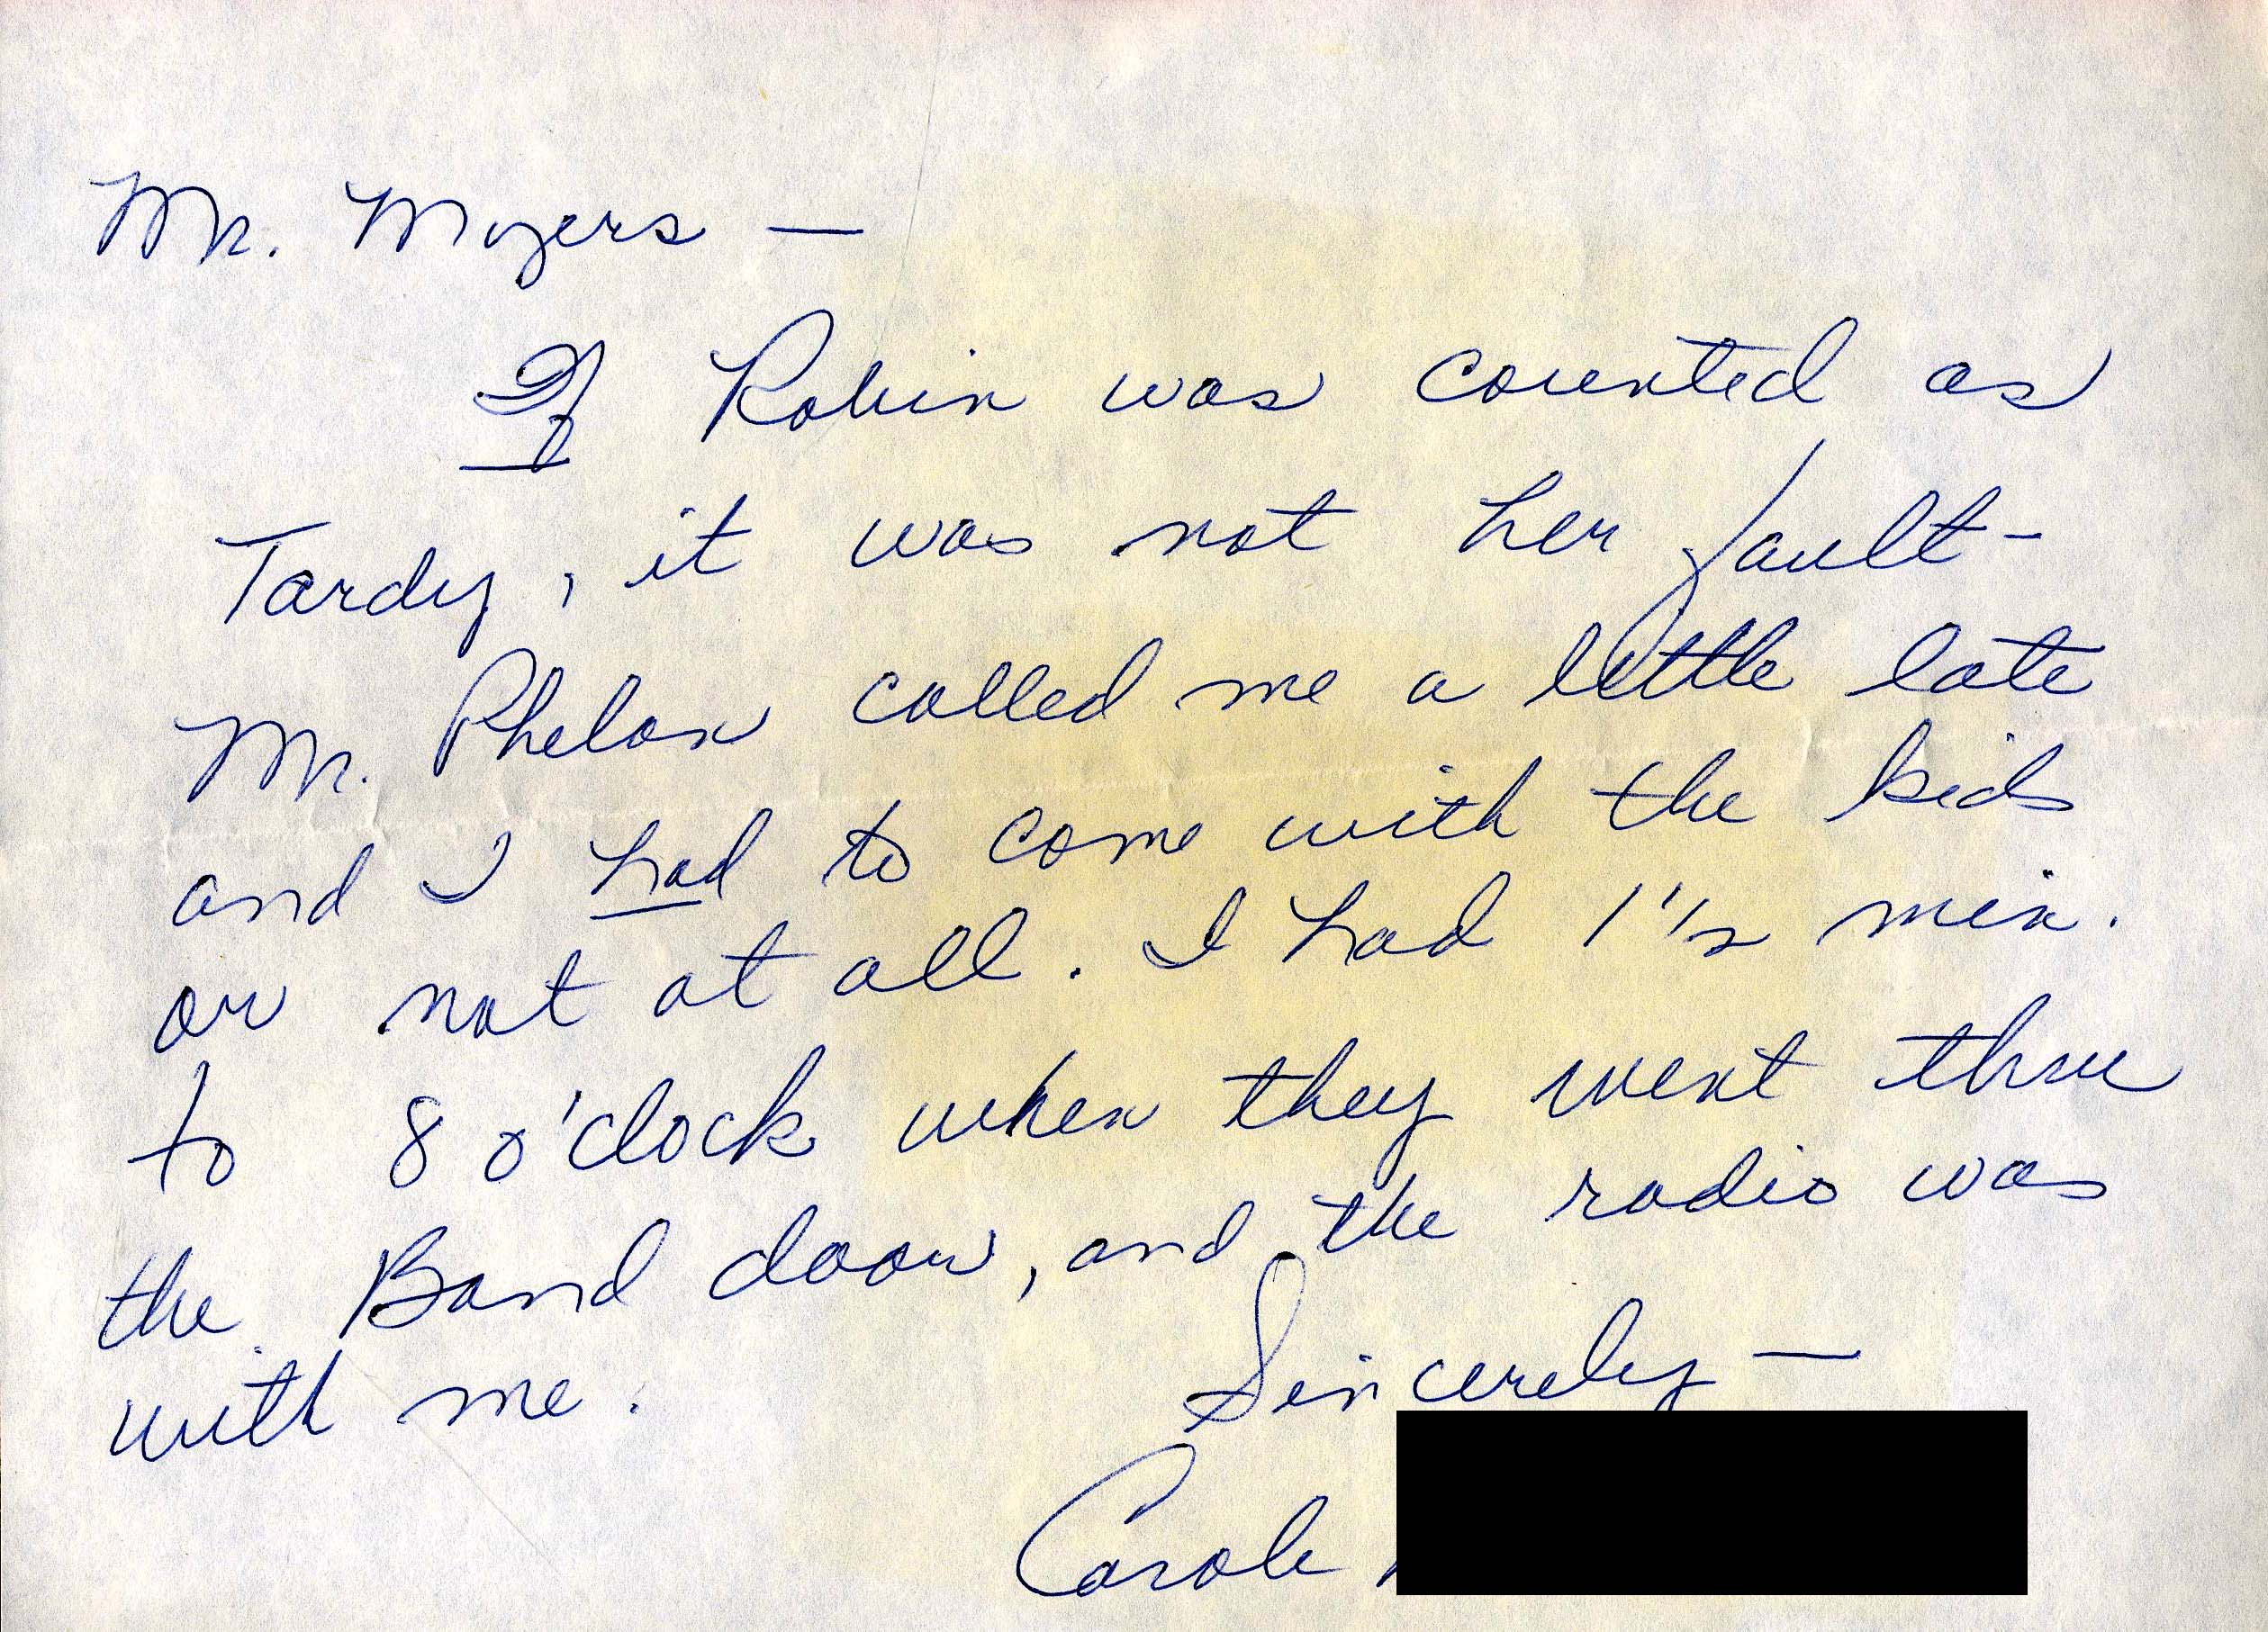 Mr. Moyers —
If Robin was counted as
Tardy, it was not her fault -
Mr. Phelan called me a little late
and I had to come with the kids
or not at all. I had 1 1/2 min.
to 8 o'clock when they went thru
the Band door, and the radio was
with me.
Sincerely —
Carole